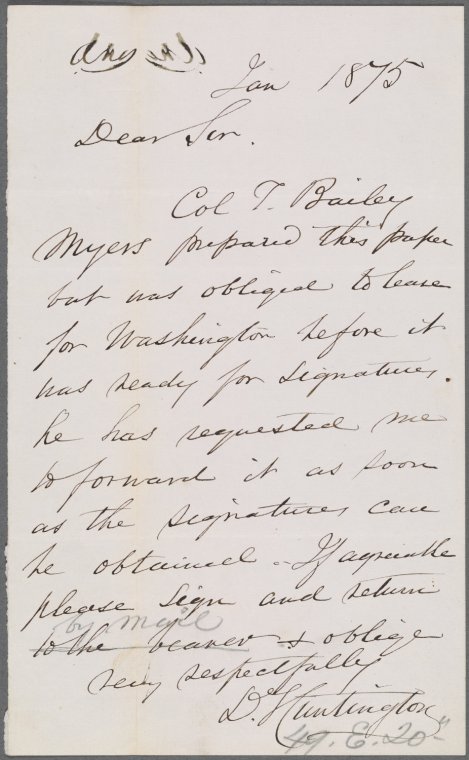 Jan 1875
Dear Sir.
Col T. Bailey
Myers prepared this paper
but was obliged to leave
for Washington before it
was ready for signatures.
he has requested me
to forward it as soon
as the signatures can
be obtained - If agreeable
please sign and return
by mail
to the bearer & oblige
very respectfully
D. Huntington
49. E. 20"